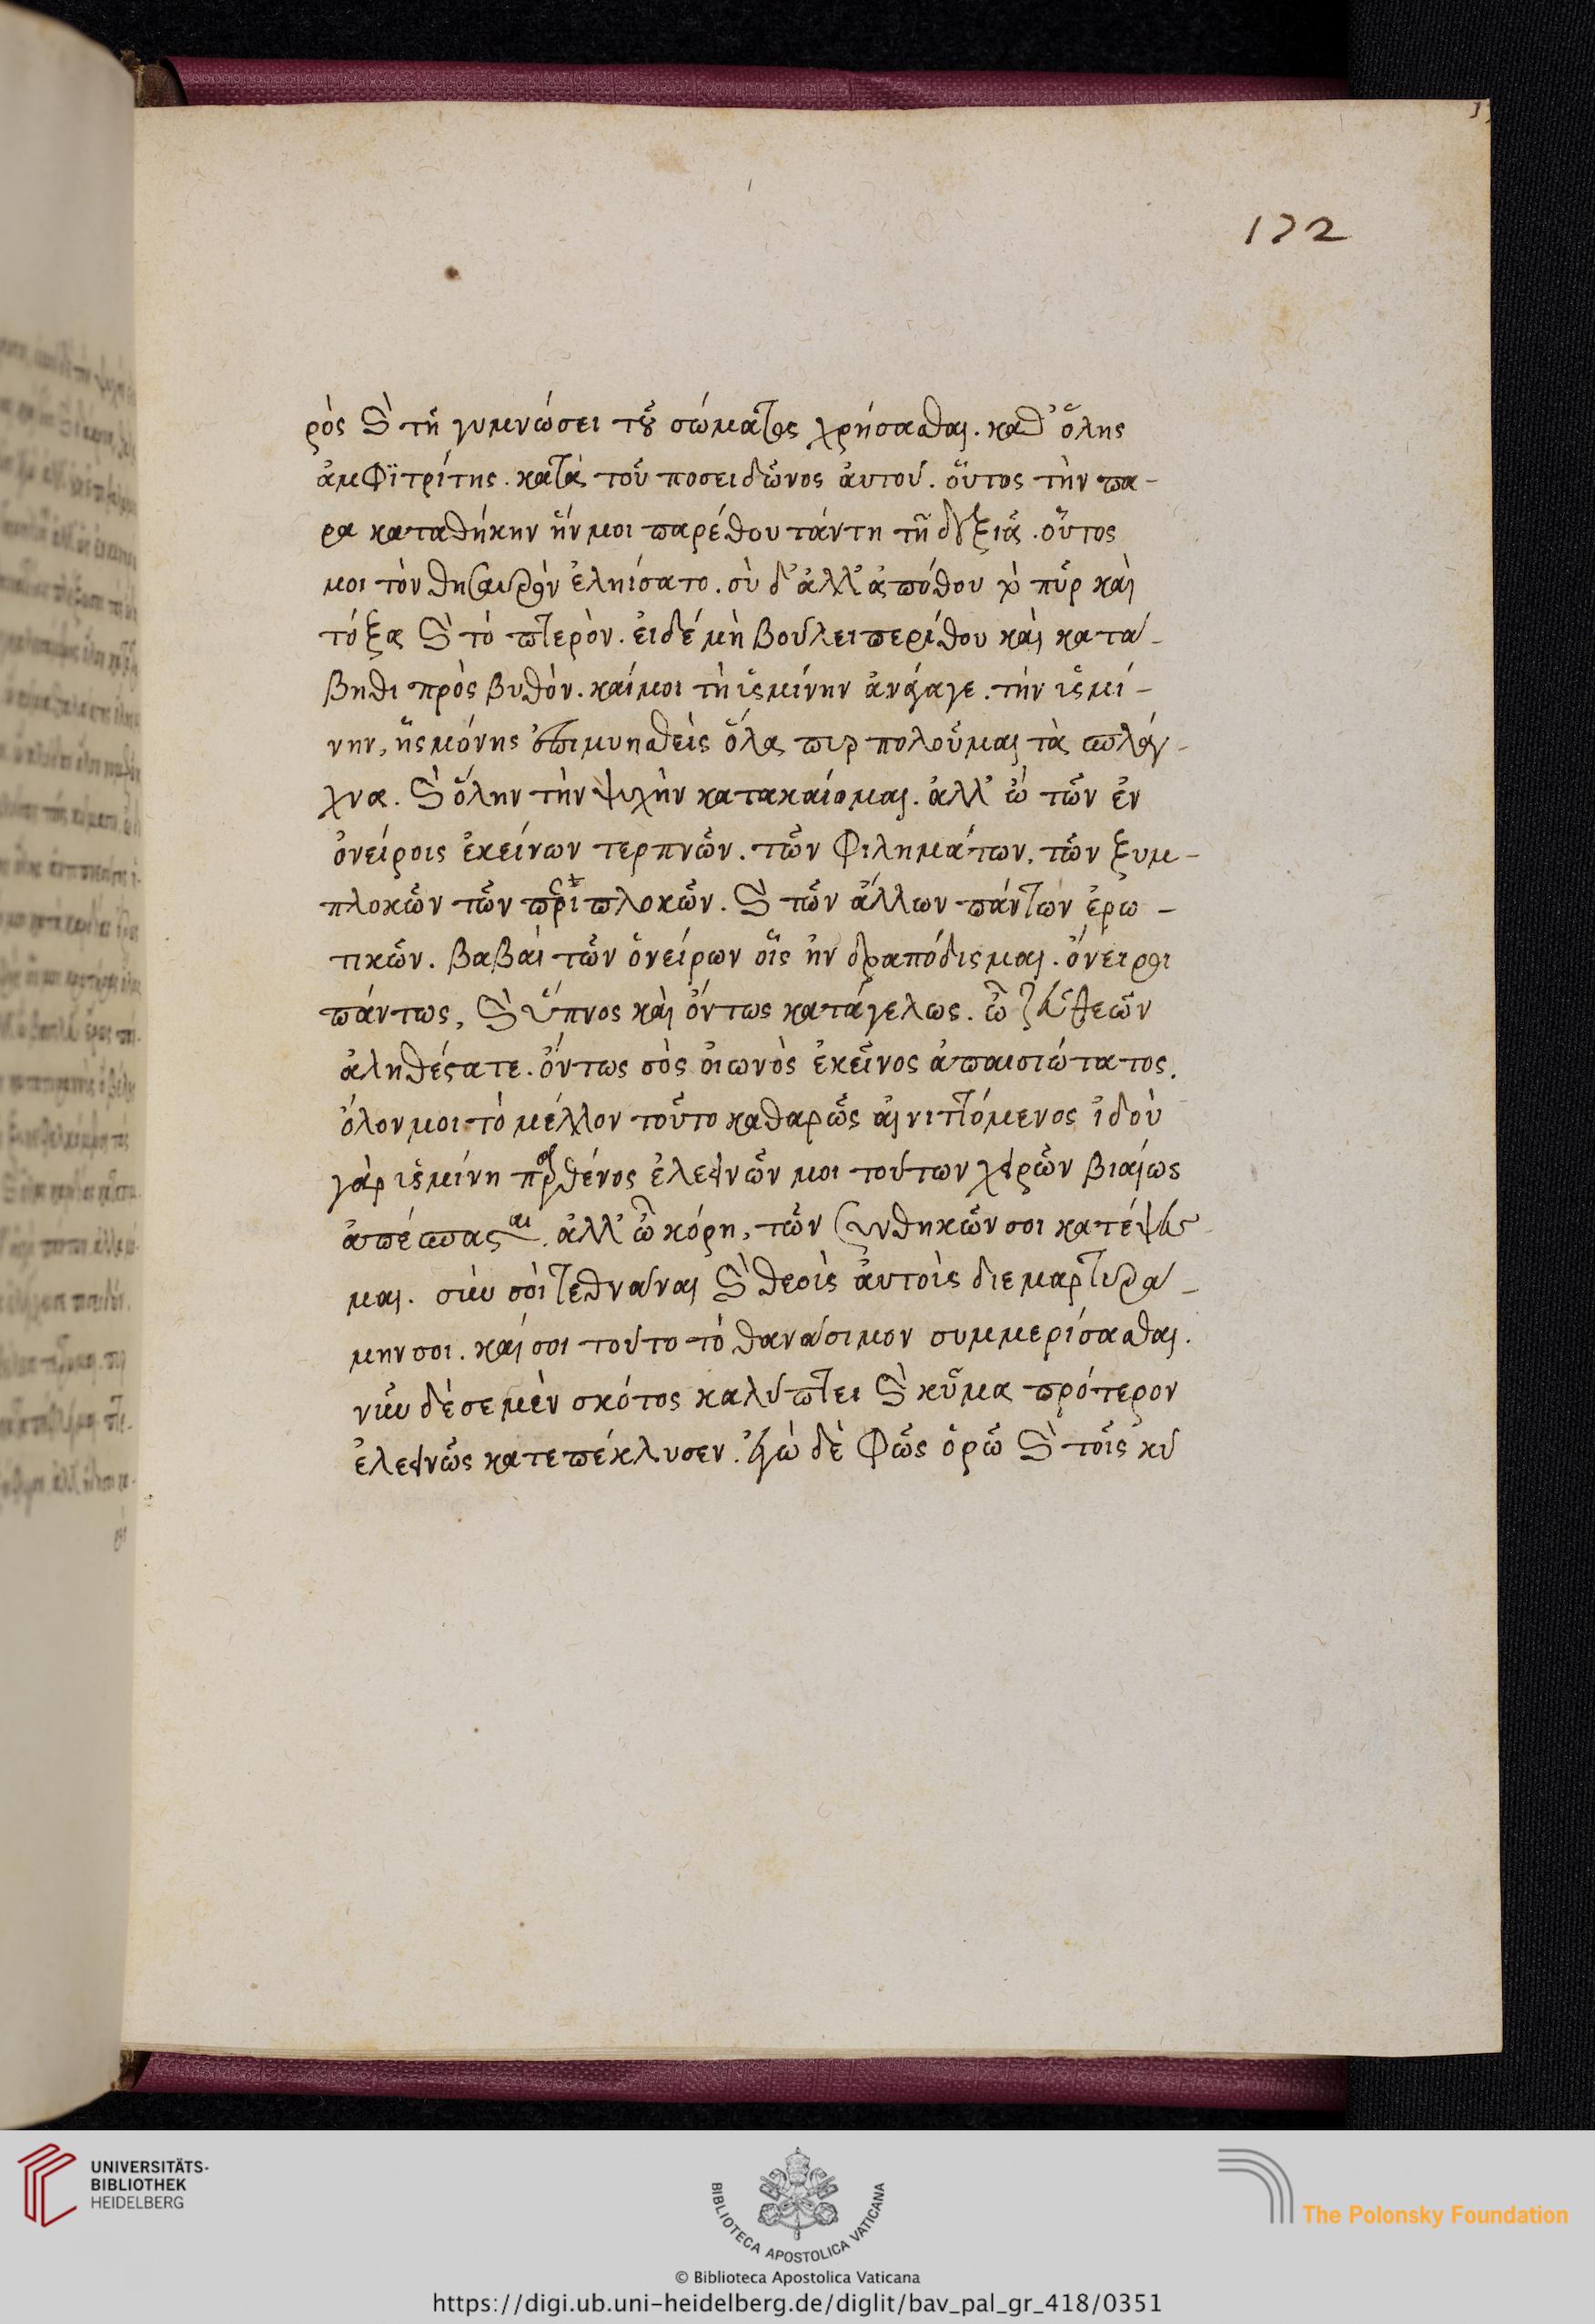 172
ρὸς καὶ τῇ γυμνώσει τοῦ σώματος χρήσασθαι. καθ' ὅλης
ἀμφϊτρίτης. κατὰ τοῦ ποσειδῶνος ἀυτοῦ. οὗτος τὴν πα-
ρα καταθήκην ἥν μοι παρέθου τάυτη τῇ δεξιᾷ. οὗτος
μοι τὸν θησαυρὸν ἐληίσατο. σὺ δ' ἀλλ' ἀπόθου τὸ πῦρ καὶ
τόξα καὶ τὸ πτερὸν. ἐιδέ μὴ βούλει περίθου καὶ κατά-
βηθι πρὸς βυθὸν. καί μοι τὴ ἰσμίνην ἀνάγαγε. τὴν ἰσμί-
νην, ἧς μόνης ἐπιμνησθεὶς ὅλα πυρπολοῦμαι τὰ σπλάγ-
χνα. καὶ ὅλην τὴν ψυχὴν κατακαίομαι. ἀλλ' ὢ τῶν ἐν
ὀνείροις ἐκείνων τερπνῶν. τῶν φιλημάτων, τῶν ξυμ-
πλοκῶν τῶν περιπλοκῶν. καὶ τῶν ἄλλων πάντων ἐρω-
τικῶν. βαβαὶ τῶν ὀνείρων οἷς ἠνδραπόδισμαι. ὄνειροι
πάντως, καὶ ὕπνος καὶ ὄντως κατάγελως. ὦ ζεῦ θεῶν
ἀληθέστατε. ὄντως σὸς ὀιωνὸς ἐκεῖνος ἀπαισιώτατος.
ὅλον μοι τὸ μέλλον τοῦτο καθαρῶς ἀινιττόμενος ἰδοὺ
γὰρ ἰσμίνη παρθένος ἐλεεινῶν μοι τούτων χειρῶν βιαίως
ἀπέσπασται. ἀλλ' ὦ κόρη, τῶν συνθηκῶν σοι κατέψευσ
μαι. σὺν σοὶ τεθνάναι καὶ θεοὶς ἀυτοὶς διεμαρτυρά-
μην σοι. καί σοι τούτο τὸ θανάσιμον συμμερίσασθαι.
νῦν δὲ σε μὲν σκότος καλύπτει καὶ κῦμα πρότερον
ἐλεεινῶς κατεπέκλυσεν. ἐγὼ δὲ φῶς ὁρῶ καὶ τοῖς κύ
UNIVERSITÄTS-
BIBLIOTHEK
HEIDELBERG
BIBLIOTECA APOSTOLICA VATICANA
© Biblioteca Apostolica Vaticana
The Polonsky Foundation
https://digi.ub.uni-heidelberg.de/diglit/bav_pal_gr_418/0351